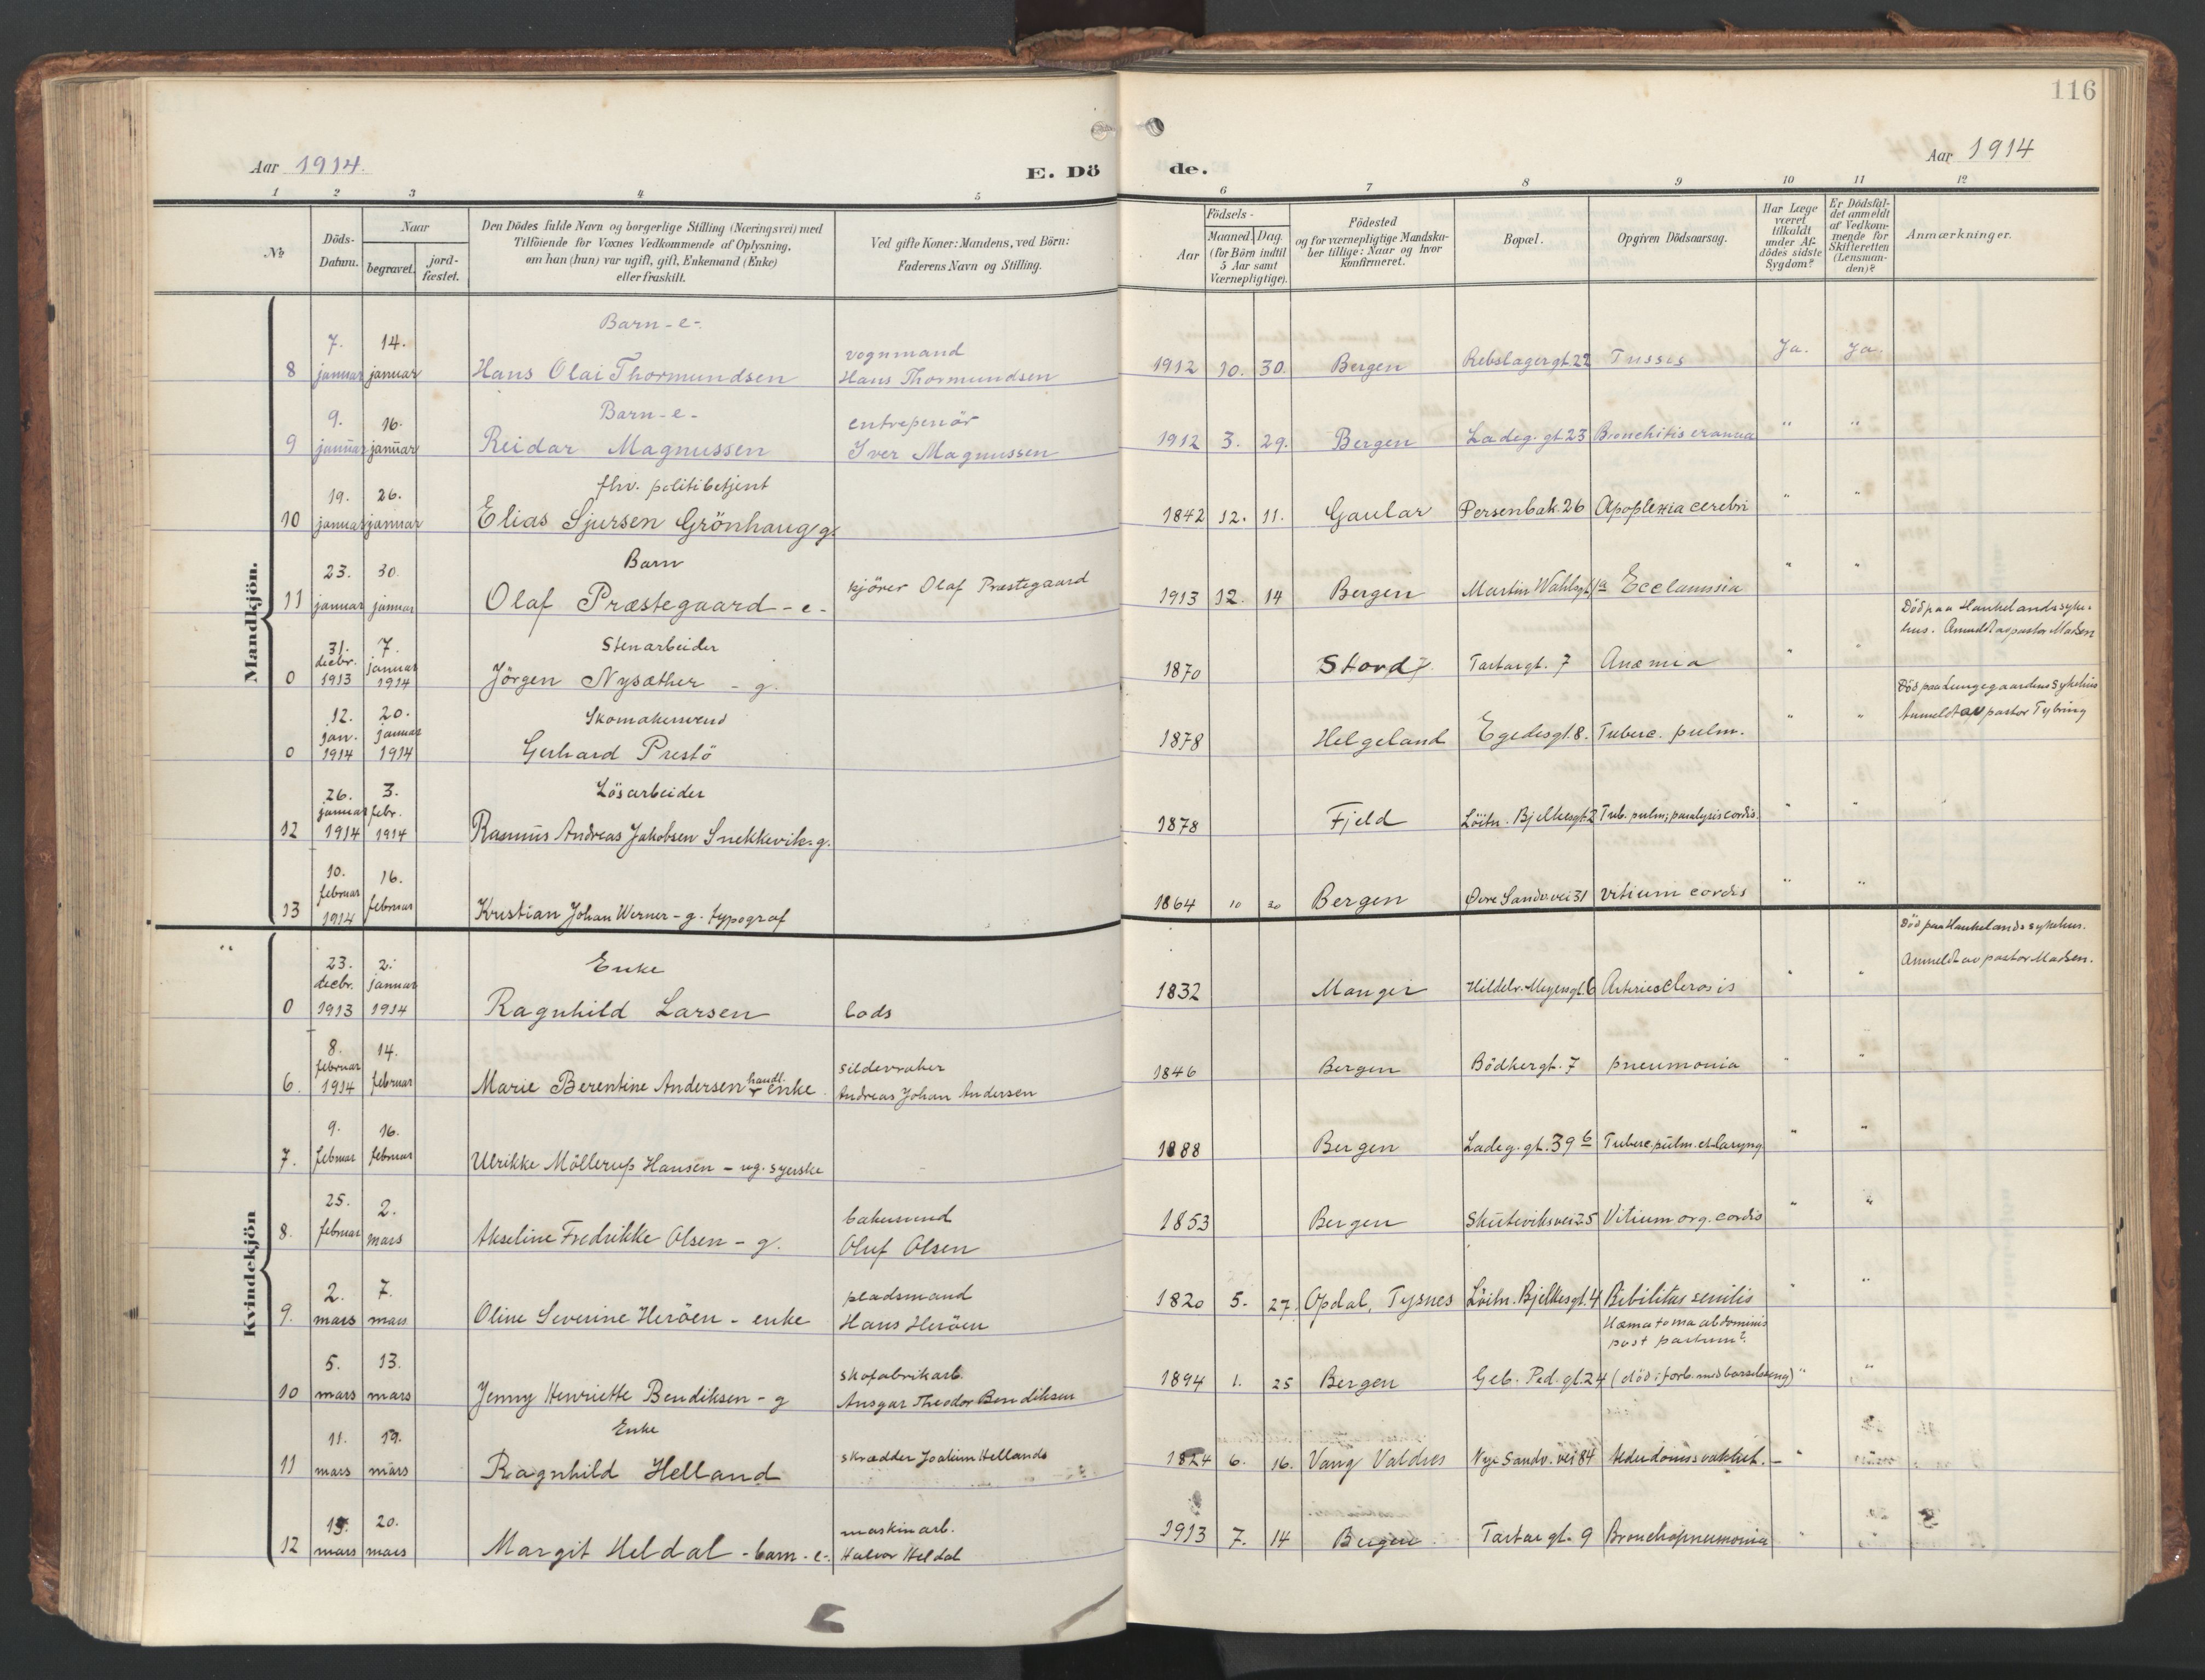 116
Aar 1914.
E. Dö
de.
Aar 1914
1 2 3 4 5 6 7 8 9 10 11 12
№
Döds-Datum.
Naar
begravet.
jord-fæstet.
Den Dödes fulde Navn og borgerlige Stilling (Næringsvei) med
Tilföiende for Voxnes Vedkommende af Oplysning,
om han (hun) var ugift, gift, Enkemand (Enke)
eller fraskilt.
Ved gifte Koner: Mandens, ved Börn:
Faderens Navn og Stilling.
Födsels-
Aar
Maaned. Dag.
(for Börn indtil
5 Aar samt
Værnepligtige).
Födested
og for værnepligtige Mandska-
ber tillige: Naar og hvor
konfirmeret.
Bopæl.
Opgiven Dödsaarsag.
Har Læge
været
tilkaldt
under Af-
dödes sidste
Sygdom?
Er Dödsfal-
det anmeldt
af Vedkom-
mende for
Skifteretten
(Lensman-
den)?
Anmærkninger.
Mandkjön.
Barn - e -.
7. 14. vognmand
8 januar januar Hans Olai Thormundsen Hans Thormundsen 1912 10. 30. Bergen Rebslagergt. 22 Tussis Ja. Ja.
9. 16. Barn - e - entrepenör
9 januar januar Reidar Magnussen Iver Magnussen 1912 3. 29. Bergen Ladeg. gt. 23 Bronchitis " "
19. 26. fhv. politibetjent
10 januar januar Elias Sjursen Grönhaug g. 1842 12. 11. Gaular Persenbak. 26 Apoplexia cerebri " "
23. 30. Barn
11 januar januar Olaf Præstegaard - e - kjörer Olaf Præstegaard 1913 12. 14 Bergen Martin Wahlsgt. 1a Ecclamsia " "
Död paa Haukelands syke-
hus. Anmeldt av pastor Madsen
31. decbr. 7. januar Stenarbeider
0 1913 1914 Jörgen Nysæther - g. 1870 Stord Tartargt. 7 Anæmia "
Död paa Lungegaardens Sykehus
Anmeldt av pastor Tybring
12. jan. 20. januar Skomakersvend
0 1914 1914 Gerhard Prestö 1878 Helgeland Egedesgt. 8. Tuberc. pulm. " "
26. januar 3. febr. Lösarbeider
12 1914 1914 Rasmus Andreas Jakobsen Snekkevik - g. 1878 Fjeld Löitn. Bjelkesgt. 2 Tub. pulm; paralysis cordis. " "
10. februar 16.
13 1914 februar Kristian Johan Werner - g. typograf 1864 10 20 Bergen Övre Sandv. vei 31 Vitium cordis " "
Kvindekjön
Död paa Haukelands sykehus.
Anmeldt av pastor Madsen.
23. decbr. 2. januar Enke
0 1913 1914 Ragnhild Larsen lods 1832 Manger Hildebr. Meyersgt. 6 Arteriesclerosis " "
8. februar 14. sildevraker
6. 1914 februar Marie Berentine Andersen handl. enke. Andreas Johan Andersen 1846 Bergen Bödkergt. 7 pneumonia " "
9. 16.
7. februar februar Ulrikke Möllerup Hansen - ug. syerske 1888 Bergen Ladeg. gt. 39 b Tuberc. pulm. et laryng " "
25. 2. bakersvend
8. februar mars Akseline Fredrikke Olsen - g. Oluf Olsen 1853 Bergen Skuteviksvei 25 Vitium org. cordis " "
2. 7. pladsmand
9. mars mars Oline Severine Heröen - enke Hans Heröen 1820 5. 27. Opdal, Tysnes Löitn. Bjelkesgt. 4 Debilitas senilis " "
Hæmatoma abdominis
post partum?
5. 13. skofabrikarb.
10 mars mars Jenny Henriette Bendiksen - g Ansgar Theodor Bendiksen 1894 1. 25 Bergen Geb. Ped. gt. 24 (död i forb. med barselseng) " "
11. 19. Enke
11 mars mars Ragnhild Helland skrædder Joakim Hellands 1824 6. 16. Vang Valdres Nye Sandv. vei 84 Alderdomssvakhet. - "
15. 20. maskinarb.
12 mars mars Margit Heldal - barn - e -. Halvor Heldal 1913 7. 14 Bergen Tartargt. 9 Bronchopneumonia "